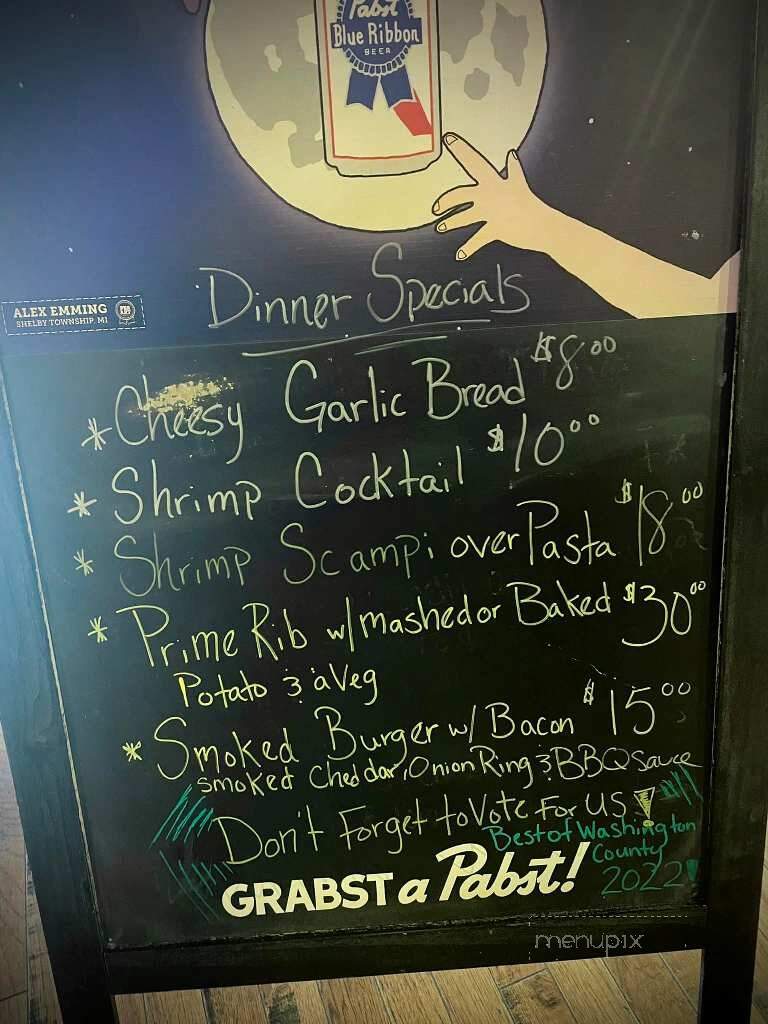 Pabst
Blue Ribbon
BEER
ALEX EMMING
SHELBY TOWNSHIP, MI
Dinner Specials
* Cheesy Garlic Bread $8.00
* Shrimp Cocktail $10.00
* Shrimp Scampi over Pasta $18.00
* Prime Rib w/mashed or Baked $30.00
Potato & a Veg
* Smoked Burger w/ Bacon $15.00
smoked Cheddar, Onion Ring & BBQ Sauce
Don't Forget to Vote For US!
Best of Washington
County
2022!
GRABST a Pabst!
menupix